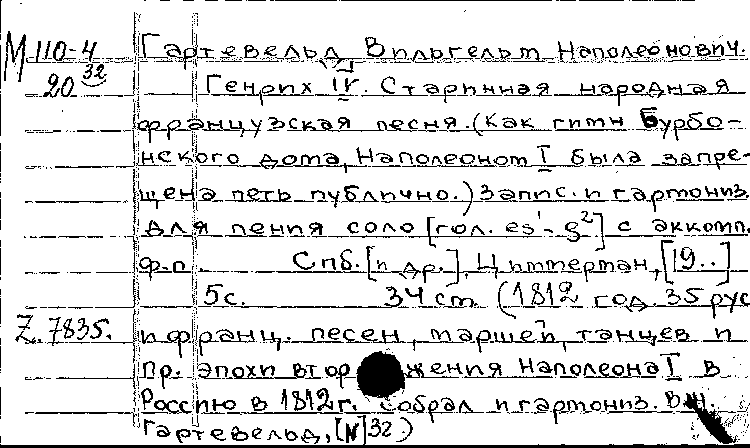 М 110-4 Гартевельд Вильгельм Наполеонович.
20 32 Генрих IV. Старинная народная
французская песня. (Как гимн Бурбо-
нского дома, Наполеоном I была запре-
щена петь публично.) Запис. и гармониз.
для пения соло [гол. es¹-g²] с аккомп.
ф.-п. Спб. [и др.], Циммерман, [19..]
5с. 34 см. (1812 год. 35 рус
Z. 7835. и франц. песен, маршей, танцев и
пр. эпохи втор жения Наполеона I в
Россию в 1812 г. Собрал и гармониз. В.Н.
Гартевельд, [N] 32)